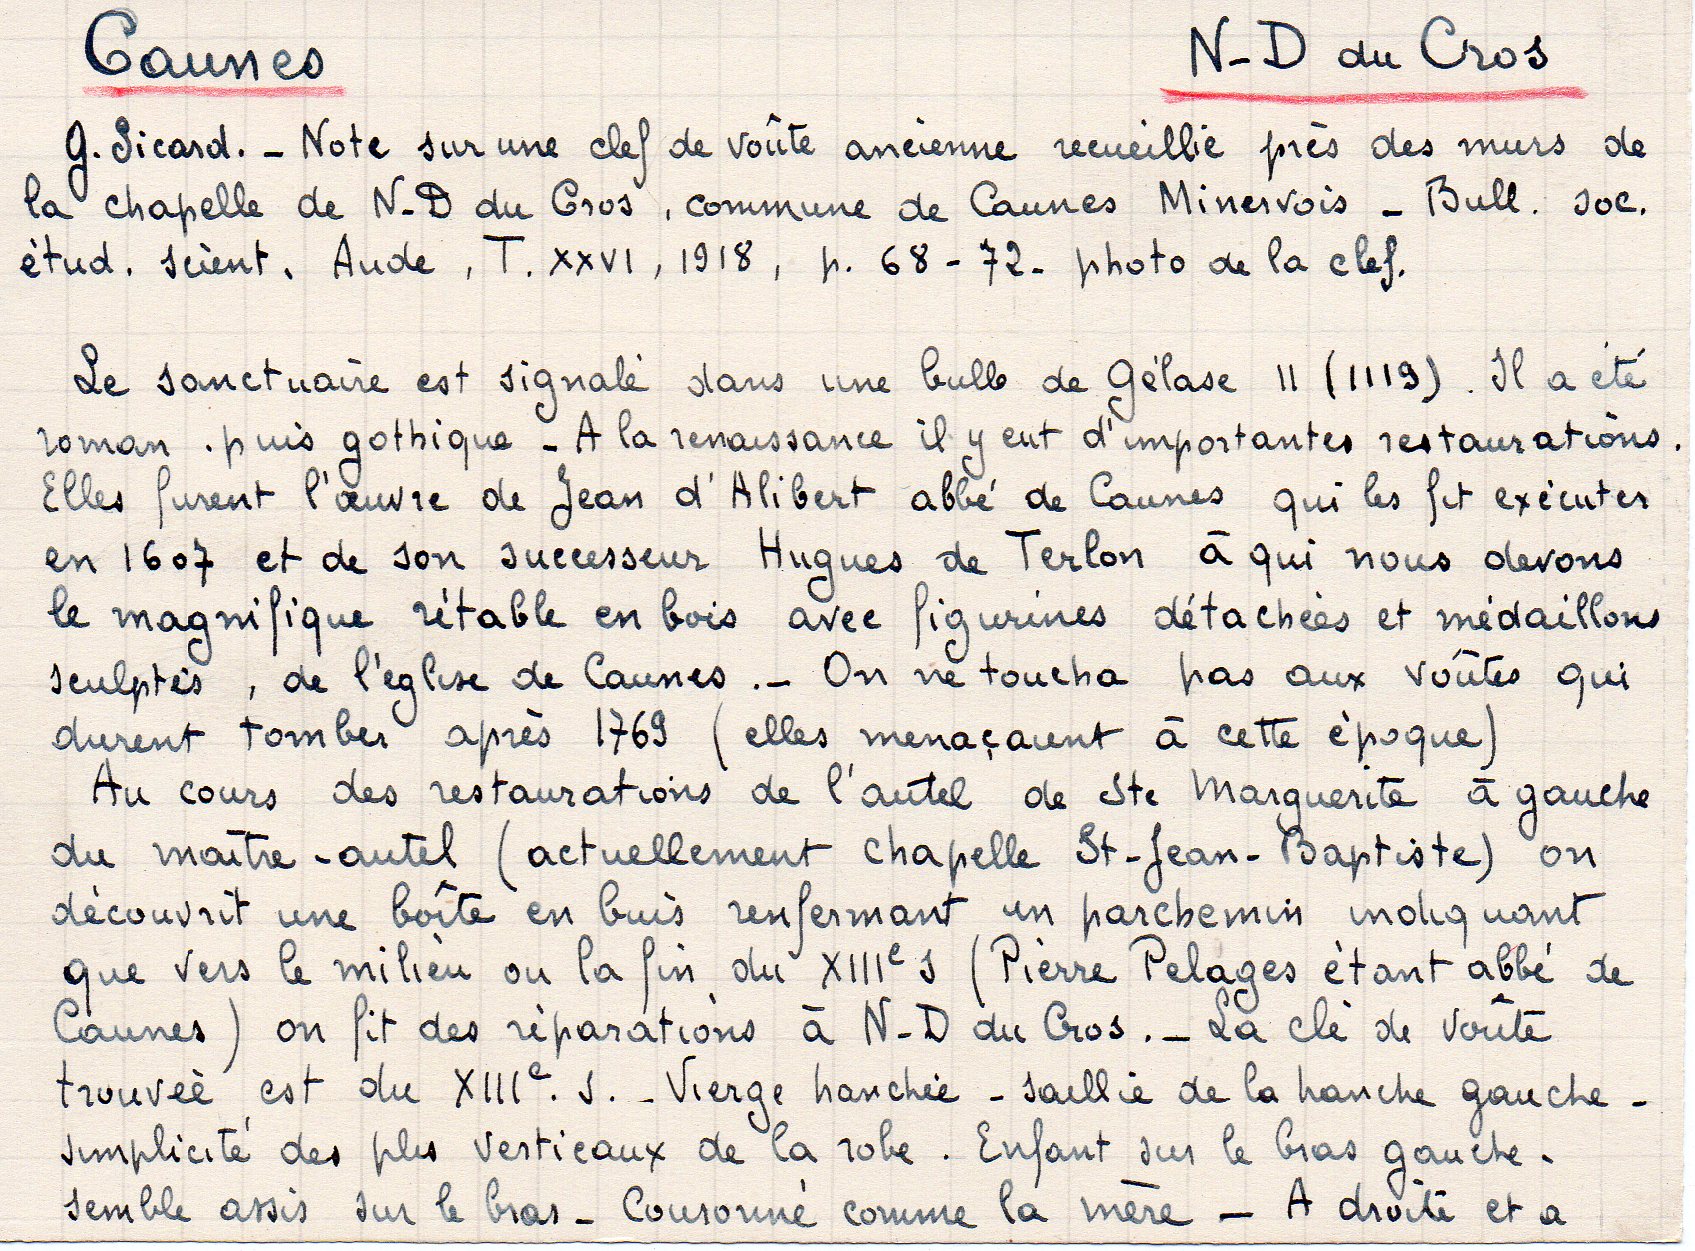 Caunes N-D du Cros
G. Sicard. - Note sur une clef de voûte ancienne recueillie près des murs de
la chapelle de N-D du Cros, commune de Caunes Minervois - Bull. soc.
étud. scient. Aude, T. XXVI, 1918, p. 68-72- photo de la clef.
Le sanctuaire est signalé dans une bulle de Gélase II (1119). Il a été
roman . puis gothique - A la renaissance il y eut d'importantes restaurations.
Elles furent l'œuvre de Jean d'Alibert abbé de Caunes qui les fit exécuter
en 1607 et de son successeur Hugues de Terlon à qui nous devons
le magnifique rétable en bois avec figurines détachées et médaillons
sculptés, de l'église de Caunes. - On ne toucha pas aux voûtes qui
durent tomber après 1769 (elles menaçaient à cette époque)
Au cours des restaurations de l'autel de Ste Marguerite à gauche
du maître-autel (actuellement chapelle St-Jean-Baptiste) on
découvrit une boîte en buis renfermant un parchemin indiquant
que vers le milieu ou la fin du XIIIe s (Pierre Pelages étant abbé de
Caunes) on fit des réparations à N-D du Cros. - La clé de voûte
trouvée est du XIIIe. s. - Vierge hanchée - saillie de la hanche gauche -
simplicité des plis verticaux de la robe. Enfant sur le bras gauche.
semble assis sur le bras - Couronné comme la mère - A droite et a